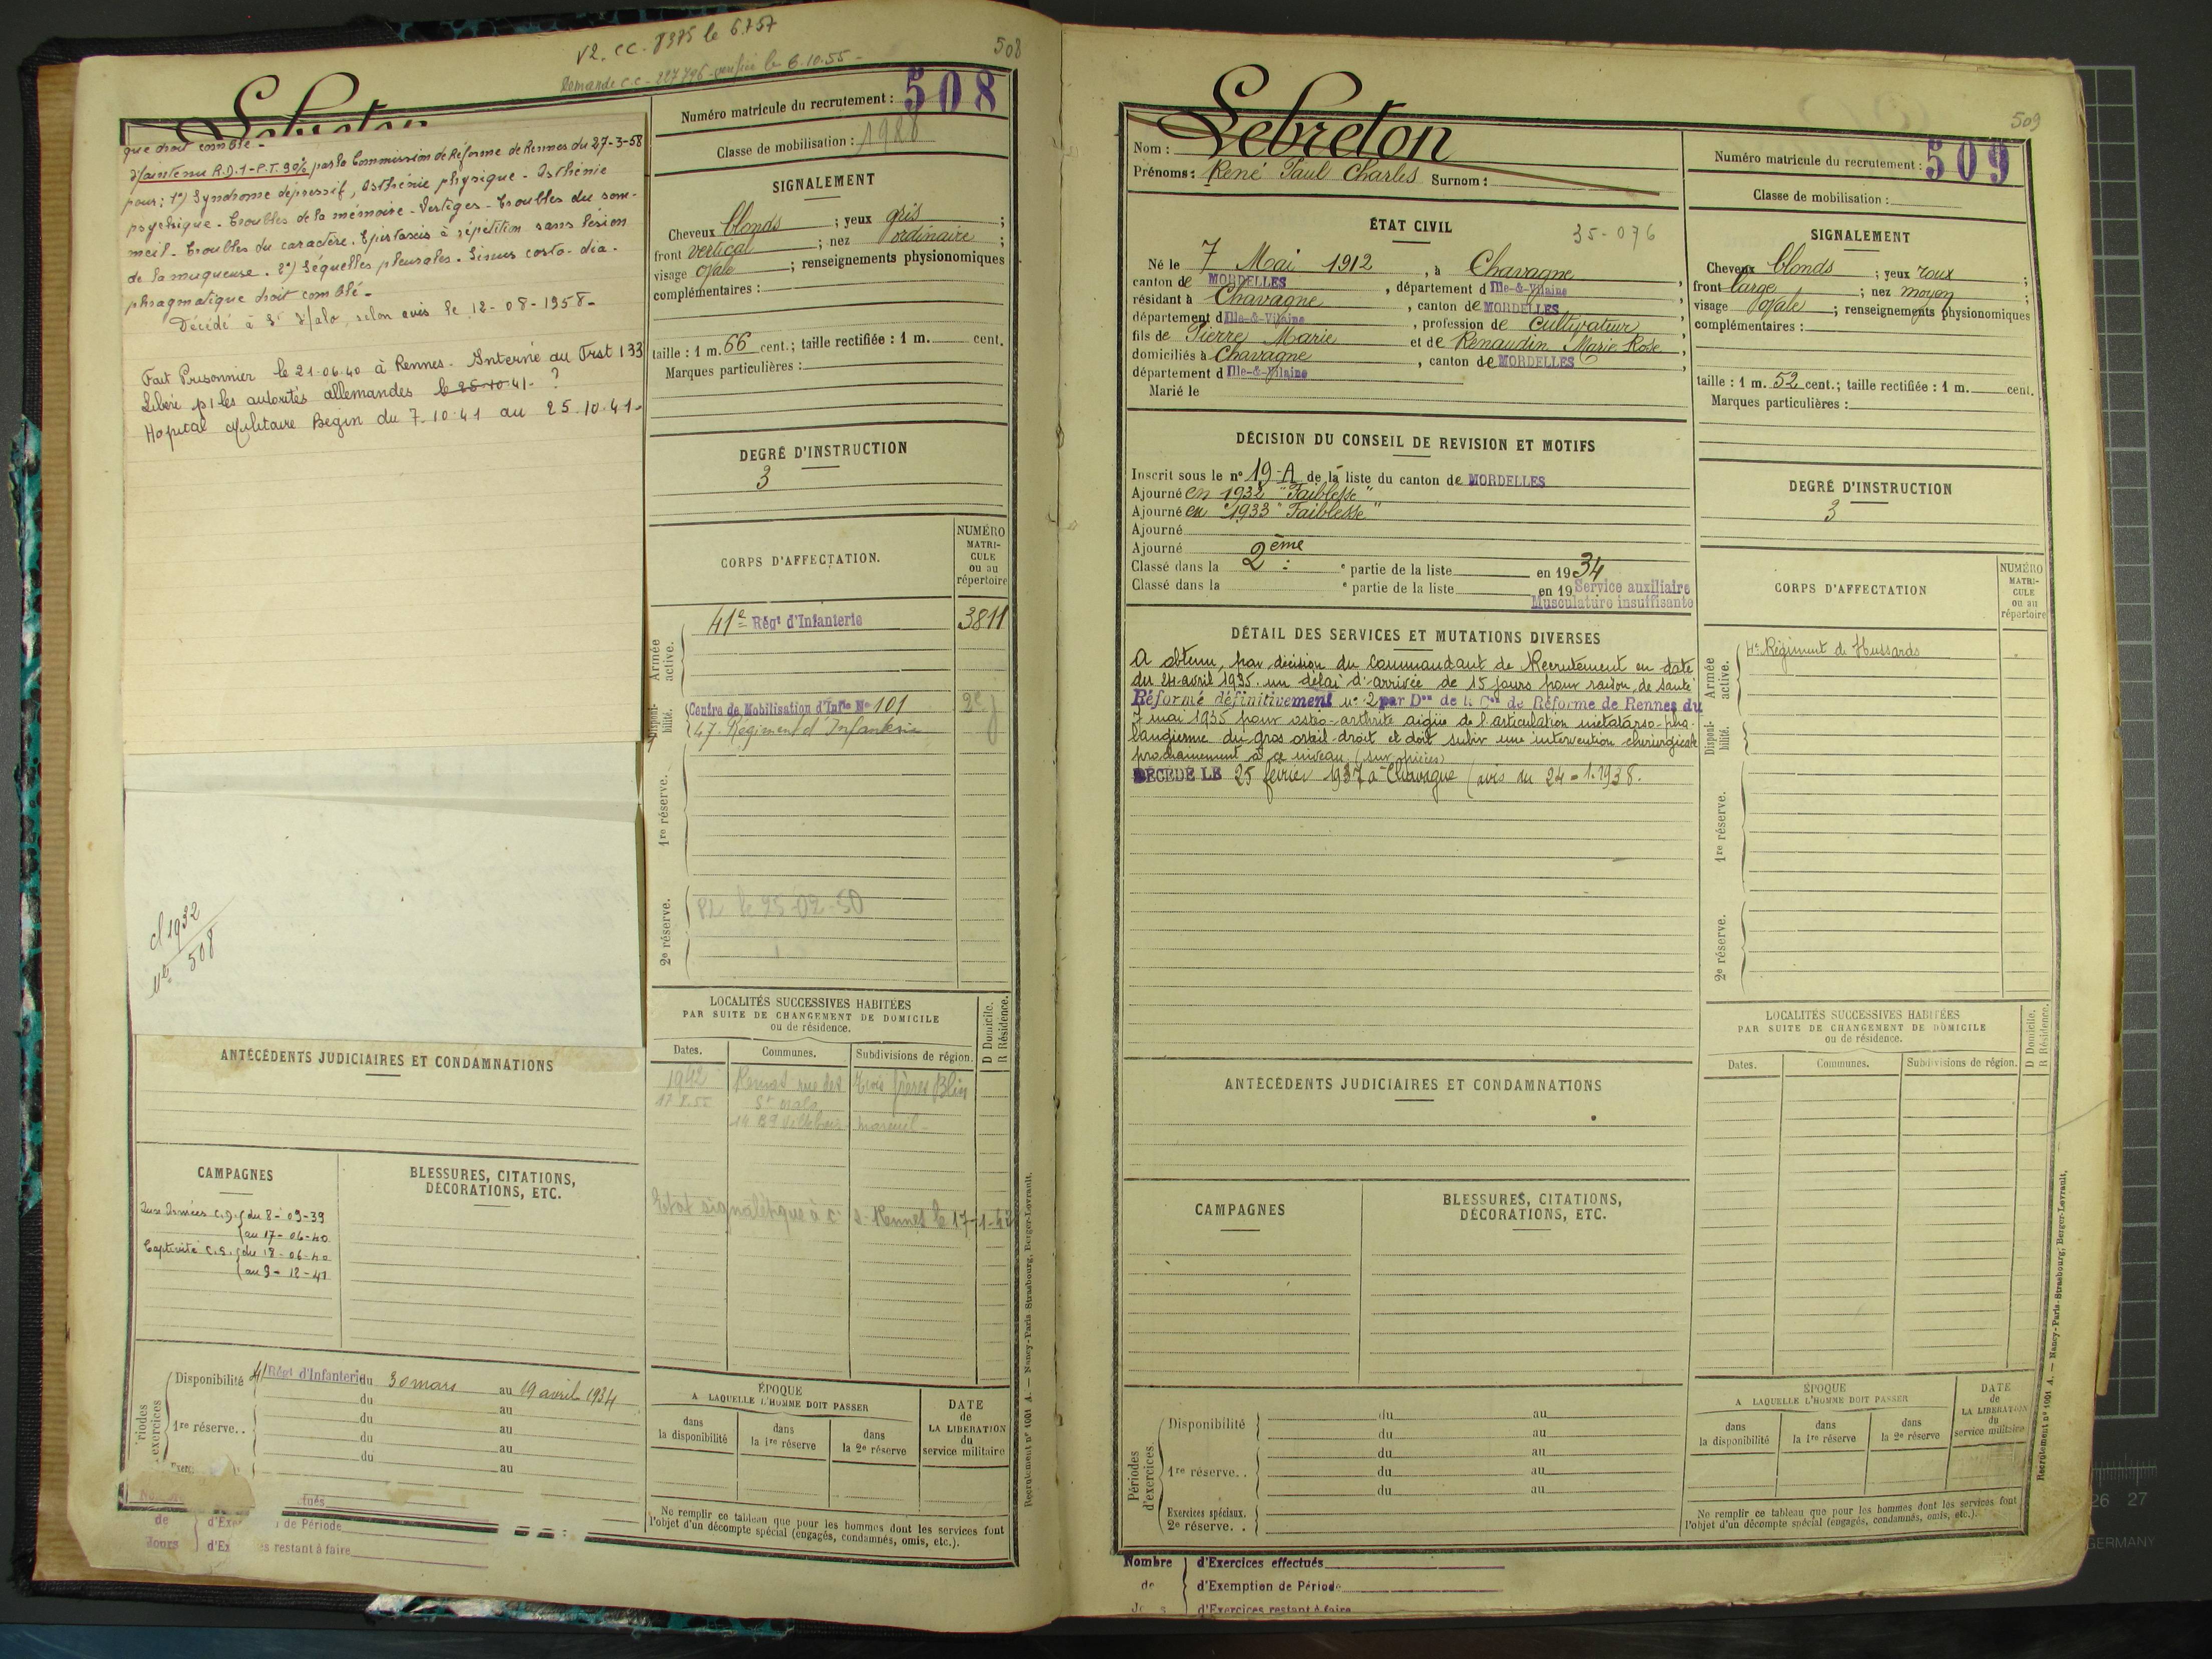 V2. CC. 8375 le 5.7.57
Demande C.C - 227796 - le 6.10.55 -
508
Lebreton
que droit comblé -
Maintenu R.D.1 - P.T. 90% par la Commission de Réforme de Rennes du 27-3-58
pour : 1°) Syndrome dépressif, Asthénie physique - Asthénie
psychique - Troubles de la mémoire - Vertiges - Troubles du som-
meil - Troubles du caractère. Epistaxis à répétition sans lésion
de la muqueuse. 2°) Séquelles pleurales. Sinus costo-dia-
phragmatique droit comblé -
Décédé à St Malo, selon avis le 12-08-1958 -
Fait Prisonnier le 21-06-40 à Rennes - Interné au Frst 133
Libéré p/ les autorités allemandes le 25-10-41- ?
Hopital Militaire Begin du 7-10-41 au 25.10.41-
cl 1932
n° 508
ANTÉCÉDENTS JUDICIAIRES ET CONDAMNATIONS
CAMPAGNES
BLESSURES, CITATIONS,
DÉCORATIONS, ETC.
Aux Armées C.D. (du 8-09-39
(au 17-06-40
Captivité C.S. (du 18-06-40
(au 9-12-41
Disponibilité 41 Régt d'Infanterie du 30 mars au 19 avril 1934
du au
1re réserve. . du au
du au
du au
riodes
exercices
tués
de d'Exe de Période
Jours d'Ex es restant à faire
Numéro matricule du recrutement : 508
Classe de mobilisation : 1928
SIGNALEMENT
Cheveux blonds ; yeux gris ;
front vertical ; nez ordinaire ;
visage ovale ; renseignements physionomiques
complémentaires :
taille : 1 m. 66 cent. ; taille rectifiée : 1 m. cent.
Marques particulières :
DEGRÉ D'INSTRUCTION
3
CORPS D'AFFECTATION.
NUMÉRO
MATRI-
CULE
ou au
répertoire
Armée
active.
41e Régt d'Infanterie 3811
Disponi-
bilité.
Centre de Mobilisation d'Infie No 101
47e Régiment d'Infanterie
1re réserve.
2e réserve.
PL le 25-02-50
LOCALITÉS SUCCESSIVES HABITÉES
PAR SUITE DE CHANGEMENT DE DOMICILE
ou de résidence.
D Domicile.
R Résidence.
Dates. Communes. Subdivisions de région.
1942 Rennes rue des Trois frères Blin
17.8.55 St Malo
14 Bd Villebois Mareuil -
Etat signalétique à C S. Rennes le 17-1-42
ÉPOQUE
A LAQUELLE L'HOMME DOIT PASSER
dans
la disponibilité
dans
la 1re réserve
dans
la 2e réserve
DATE
de
LA LIBERATION
du
service militaire
Ne remplir ce tableau que pour les hommes dont les services font
l'objet d'un décompte spécial (engagés, condamnés, omis, etc.).
Recrutement n° 1001 A. — Nancy-Paris-Strasbourg, Berger-Levrault.
509
Nom : Lebreton
Prénoms : René Paul Charles Surnom :
ÉTAT CIVIL
35-076
Né le 7 Mai 1912 , à Chavagne ,
canton de MORDELLES , département d Ille-&-Vilaine ,
résidant à Chavagne , canton de MORDELLES ,
département d Ille-&-Vilaine , profession de cultivateur ,
fils de Pierre Marie et de Renaudin Marie Rose ,
domiciliés à Chavagne , canton de MORDELLES ,
département d Ille-&-Vilaine
Marié le
DÉCISION DU CONSEIL DE REVISION ET MOTIFS
Inscrit sous le n° 19-A de la liste du canton de MORDELLES
Ajourné en 1932 "Faiblesse"
Ajourné en 1933 "Faiblesse"
Ajourné
Ajourné
Classé dans la 2ème e partie de la liste en 1934
Classé dans la e partie de la liste en 19 Service auxiliaire
Musculature insuffisante
DÉTAIL DES SERVICES ET MUTATIONS DIVERSES
A obtenu, par décision du Commandant de Recrutement en date
du 24 avril 1935 un délai d'arrivée de 15 jours pour raison de santé
Réformé définitivement n° 2 par Don de la Con de Réforme de Rennes du
7 mai 1935 pour ostéo-arthrite aigüe de l'articulation métatarso-pha-
langienne du gros orteil droit et doit subir une intervention chirurgicale
prochainement à ce niveau (sur pièces)
DÉCÉDÉ LE 25 février 1937 à Chavagne (avis du 24-1-1938.
ANTÉCÉDENTS JUDICIAIRES ET CONDAMNATIONS
CAMPAGNES
BLESSURES, CITATIONS,
DÉCORATIONS, ETC.
Périodes
d'exercices.
Disponibilité du au
du au
1re réserve. . du au
du au
du au
Exercices spéciaux.
2e réserve. .
Nombre d'Exercices effectués
de d'Exemption de Période
d'Exercices restant à faire
Numéro matricule du recrutement : 509
Classe de mobilisation :
SIGNALEMENT
Cheveux blonds ; yeux roux ;
front large ; nez moyen ;
visage ovale ; renseignements physionomiques
complémentaires :
taille : 1 m. 52 cent. ; taille rectifiée : 1 m. cent.
Marques particulières :
DEGRÉ D'INSTRUCTION
3
CORPS D'AFFECTATION
NUMÉRO
MATRI-
CULE
ou au
répertoire
Armée
active.
4e Régiment de Hussards
Disponi-
bilité.
1re réserve.
2e réserve.
LOCALITÉS SUCCESSIVES HABITÉES
PAR SUITE DE CHANGEMENT DE DOMICILE
ou de résidence.
D Domicile.
R Résidence.
Dates. Communes. Subdivisions de région.
ÉPOQUE
A LAQUELLE L'HOMME DOIT PASSER
dans
la disponibilité
dans
la 1re réserve
dans
la 2e réserve
DATE
de
LA LIBERATION
du
service militaire
Ne remplir ce tableau que pour les hommes dont les services font
l'objet d'un décompte spécial (engagés, condamnés, omis, etc.).
Recrutement n° 1001 A. — Nancy-Paris-Strasbourg, Berger-Levrault.
26 27
GERMANY